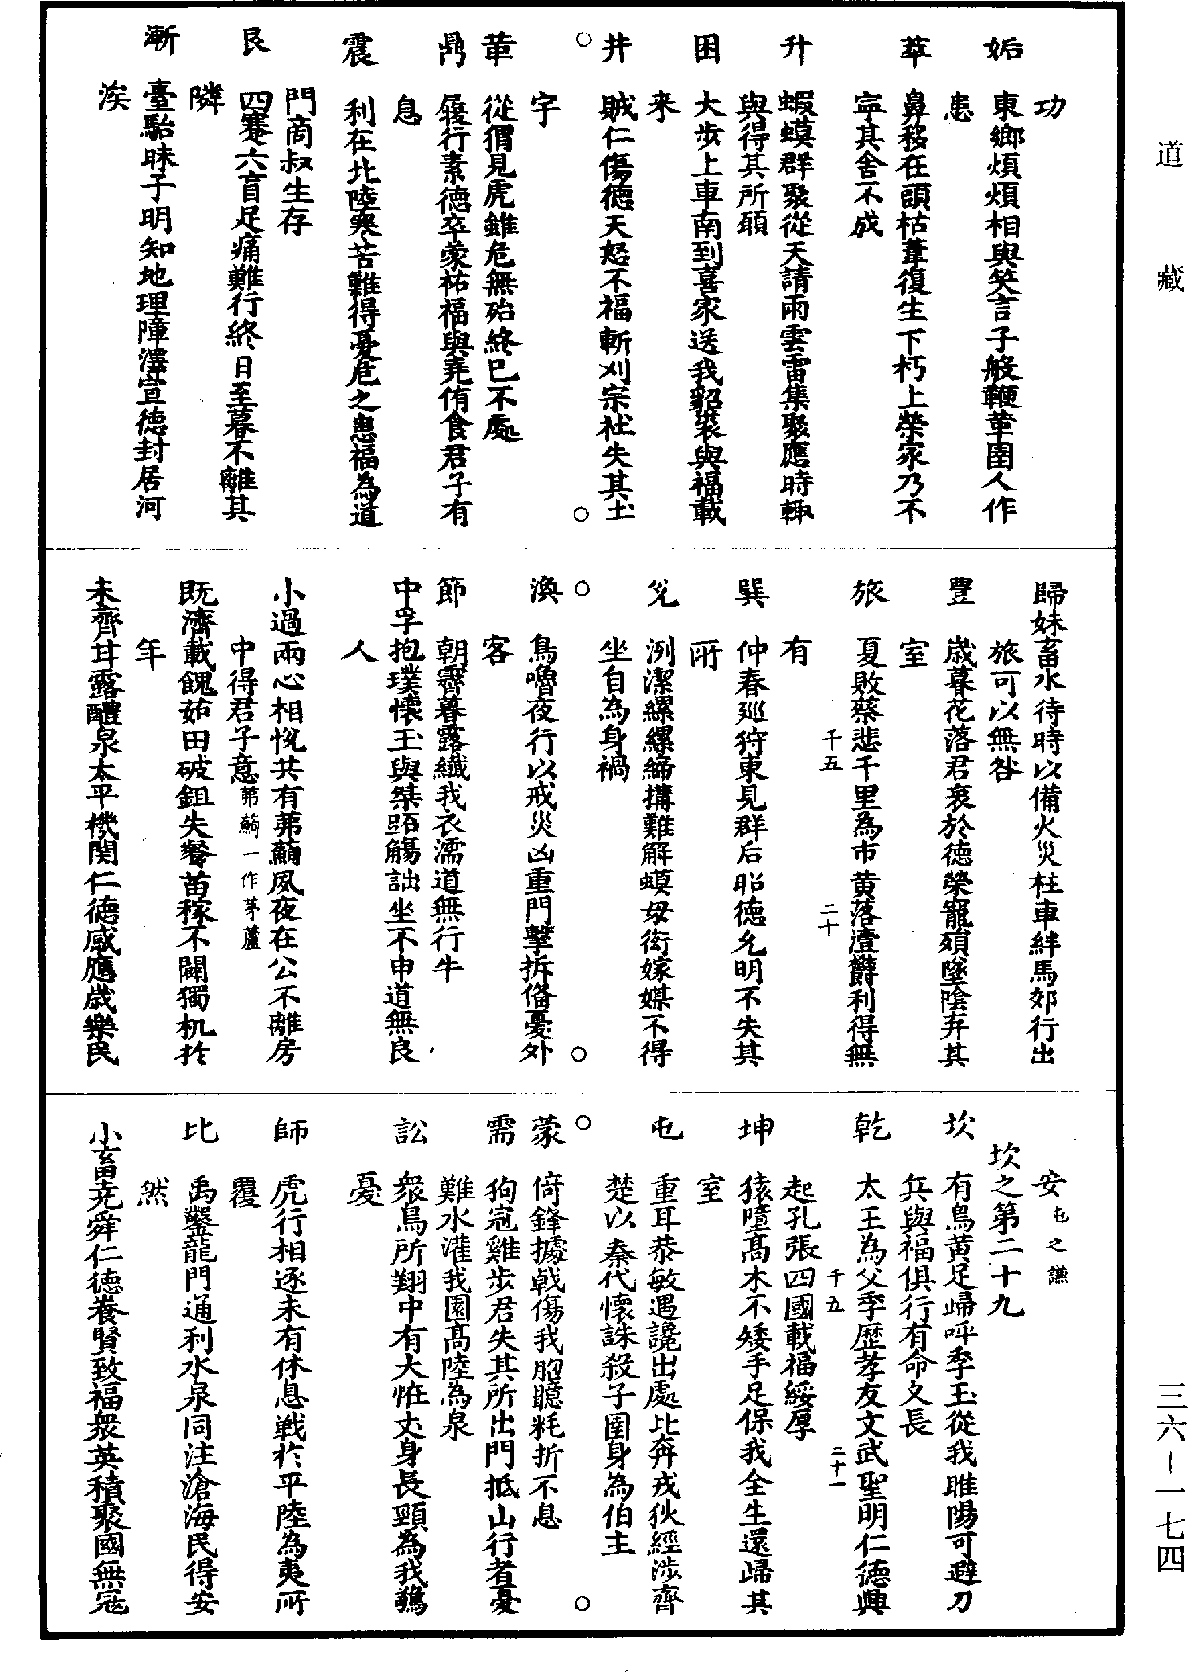 道藏
三六—一七四
功
姤 東鄉煩煩相與笑言子般鞭革圉人作
患
萃 鼻移在頭枯葦復生下朽上榮家乃不
寧其舍不成
升 蝦蟆群聚從天請雨雲雷集聚應時輙
與得其所願
困 大步上車南到喜家送我貂裘與福載
来
井 賊仁傷德天怒不福斬刈宗社失其土
宇
革 從猬見虎雖危無殆終已不處
鼎 履行素德卒蒙祐福與堯侑食君子有
息
震 利在北陸寒苦難得憂危之患福為道
門商叔生存
艮 四蹇六盲足痛難行終日至暮不離其
隣
漸 臺駘昧子明知地理障澤宣德封居河
涘
歸妹畜水待時以備火災柱車絆馬郊行出
旅可以無咎
豐 歲暮花落君衰於德榮寵頹墜陰弃其
室
旅 夏敗蔡悲千里為市黃落澧欝利得無
有
千五 二十
巽 仲春廵狩東見群后昭德允明不失其
所
兌 洌潔纍纍締搆難解蟆母衒嫁媒不得
坐自為身禍
渙 鳥嚕夜行以戒災凶重門擊拆俻憂外
客
節 朝霽暮露纖我衣濡道無行牛
中孚抱璞懷玉與桀跖觴詘坐不申道無良
人
小過兩心相恱共有茀䕌夙夜在公不離房
中得君子意茀䕌一作茅蘆
既濟載餽茹田破鉏失餐苗稼不闢獨机扵
年
未齊甘露醴泉太平機関仁德感應歲樂民
安 屯之謙
坎之第二十九
坎 有鳥黃足歸呼季玉從我睢陽可避刀
兵與福俱行有命乆長
乾 太王為父季歷孝友文武聖明仁德興
起孔張四國載福綏厚
千五 二十一
坤 猿墮髙木不矮手足保我全生還歸其
室
屯 重耳恭敏遇讒出處比奔戎狄經涉齊
楚以秦代懷誅殺子圉身為伯主
蒙 倚鋒據戟傷我胷臆耗折不息
需 狗冠雞步君失其所出門抵山行者憂
難水灌我園高陸為泉
訟 衆鳥所翔中有大恠丈身長頸為我驚
憂
師 虎行相逐未有休息戰扵平陸為夷所
覆
比 禹鑿龍門通利水泉同注滄海民得安
然
小畜尭舜仁德養賢致福衆英積聚國無冦